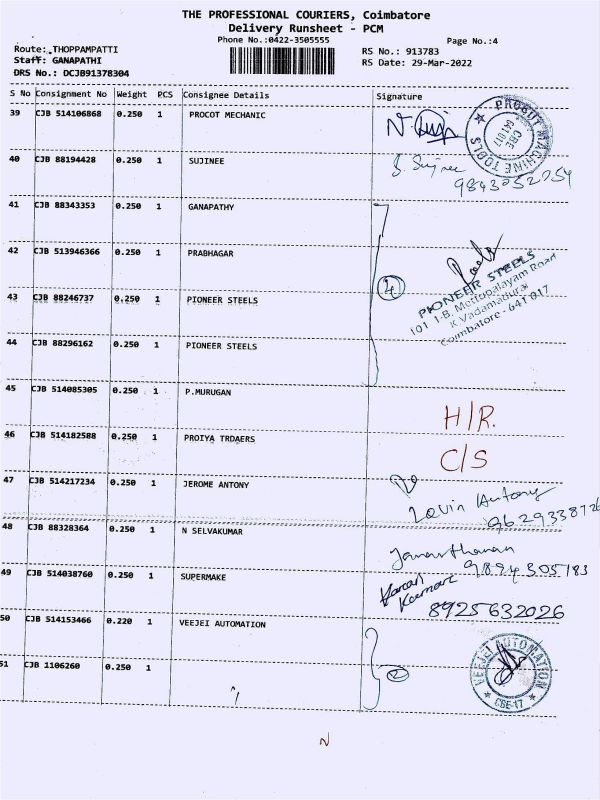 THE PROFESSIONAL COURIERS, Coimbatore
Delivery Runsheet - PCM
Phone No.:0422-3505555
Page No.:4
Route: THOPPAMPATTI
RS No.: 913783
Staff: GANAPATHI
RS Date: 29-Mar-2022
DRS No.: DCJB91378304
S No Consignment No Weight PCS Consignee Details Signature
39 CJB 514106868 0.250 1 PROCOT MECHANIC
PROCUT MACHINE TOOLS
CBE
641 017
40 CJB 88194428 0.250 1 SUJINEE
S. Sujinee
9843052054
41 CJB 88343353 0.250 1 GANAPATHY
42 CJB 513946366 0.250 1 PRABHAGAR
43 CJB 88246737 0.250 1 PIONEER STEELS
4
PIONEER STEELS
101 1-B, Mettupalayam Road
K.Vadamadurai
Coimbatore - 641 017
44 CJB 88296162 0.250 1 PIONEER STEELS
45 CJB 514085305 0.250 1 P.MURUGAN
H/R.
46 CJB 514182588 0.250 1 PROIYA TRDAERS
C/S
47 CJB 514217234 0.250 1 JEROME ANTONY
Lavin Antony
48 CJB 88328364 0.250 1 N SELVAKUMAR
Janarthanan
9894305183
49 CJB 514038760 0.250 1 SUPERMAKE
Kumar
8925632026
50 CJB 514153466 0.220 1 VEEJEI AUTOMATION
2
VEEJEI AUTOMATION
CBE-17
51 CJB 1106260 0.250 1
N